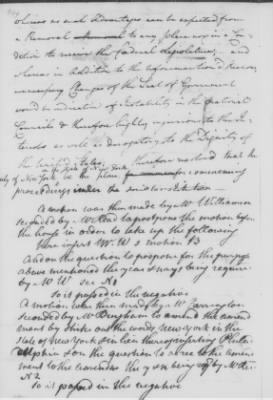 whereas no such advantages can be expected from
a Removal to any place now in a Con
dition to receive the federal Legislature, and
whereas in addition to the reasons
unnecessary Changes of the Seat of Government
would be indicative of instability in the national
Councils & therefore highly injurious to the In
terests as well as derogatory to the Dignity of
the United States; therefore resolved that the
City of New York in the State of New York be the place for commencing
proceedings under the Constitution
A motion was then made by Mr Williamson
seconded by Mr Read to postpone the motion before
the house in order to take up the following
here insert Mr W's motion B
And on the question to postpone for the purpose
above mentioned the yeas & nays being required
by Mr W see No 1
So it passed in the negative
A motion was then made by Mr Carrington
seconded by Mr Bingham to amend the amend
ment by strike out the words New york in the
state of new york & in lieu thereof insert Phila
delphia & on the question to agree to the amend
ment to the amendm the yeas being req by Mr
N 2
So it passed in the negative